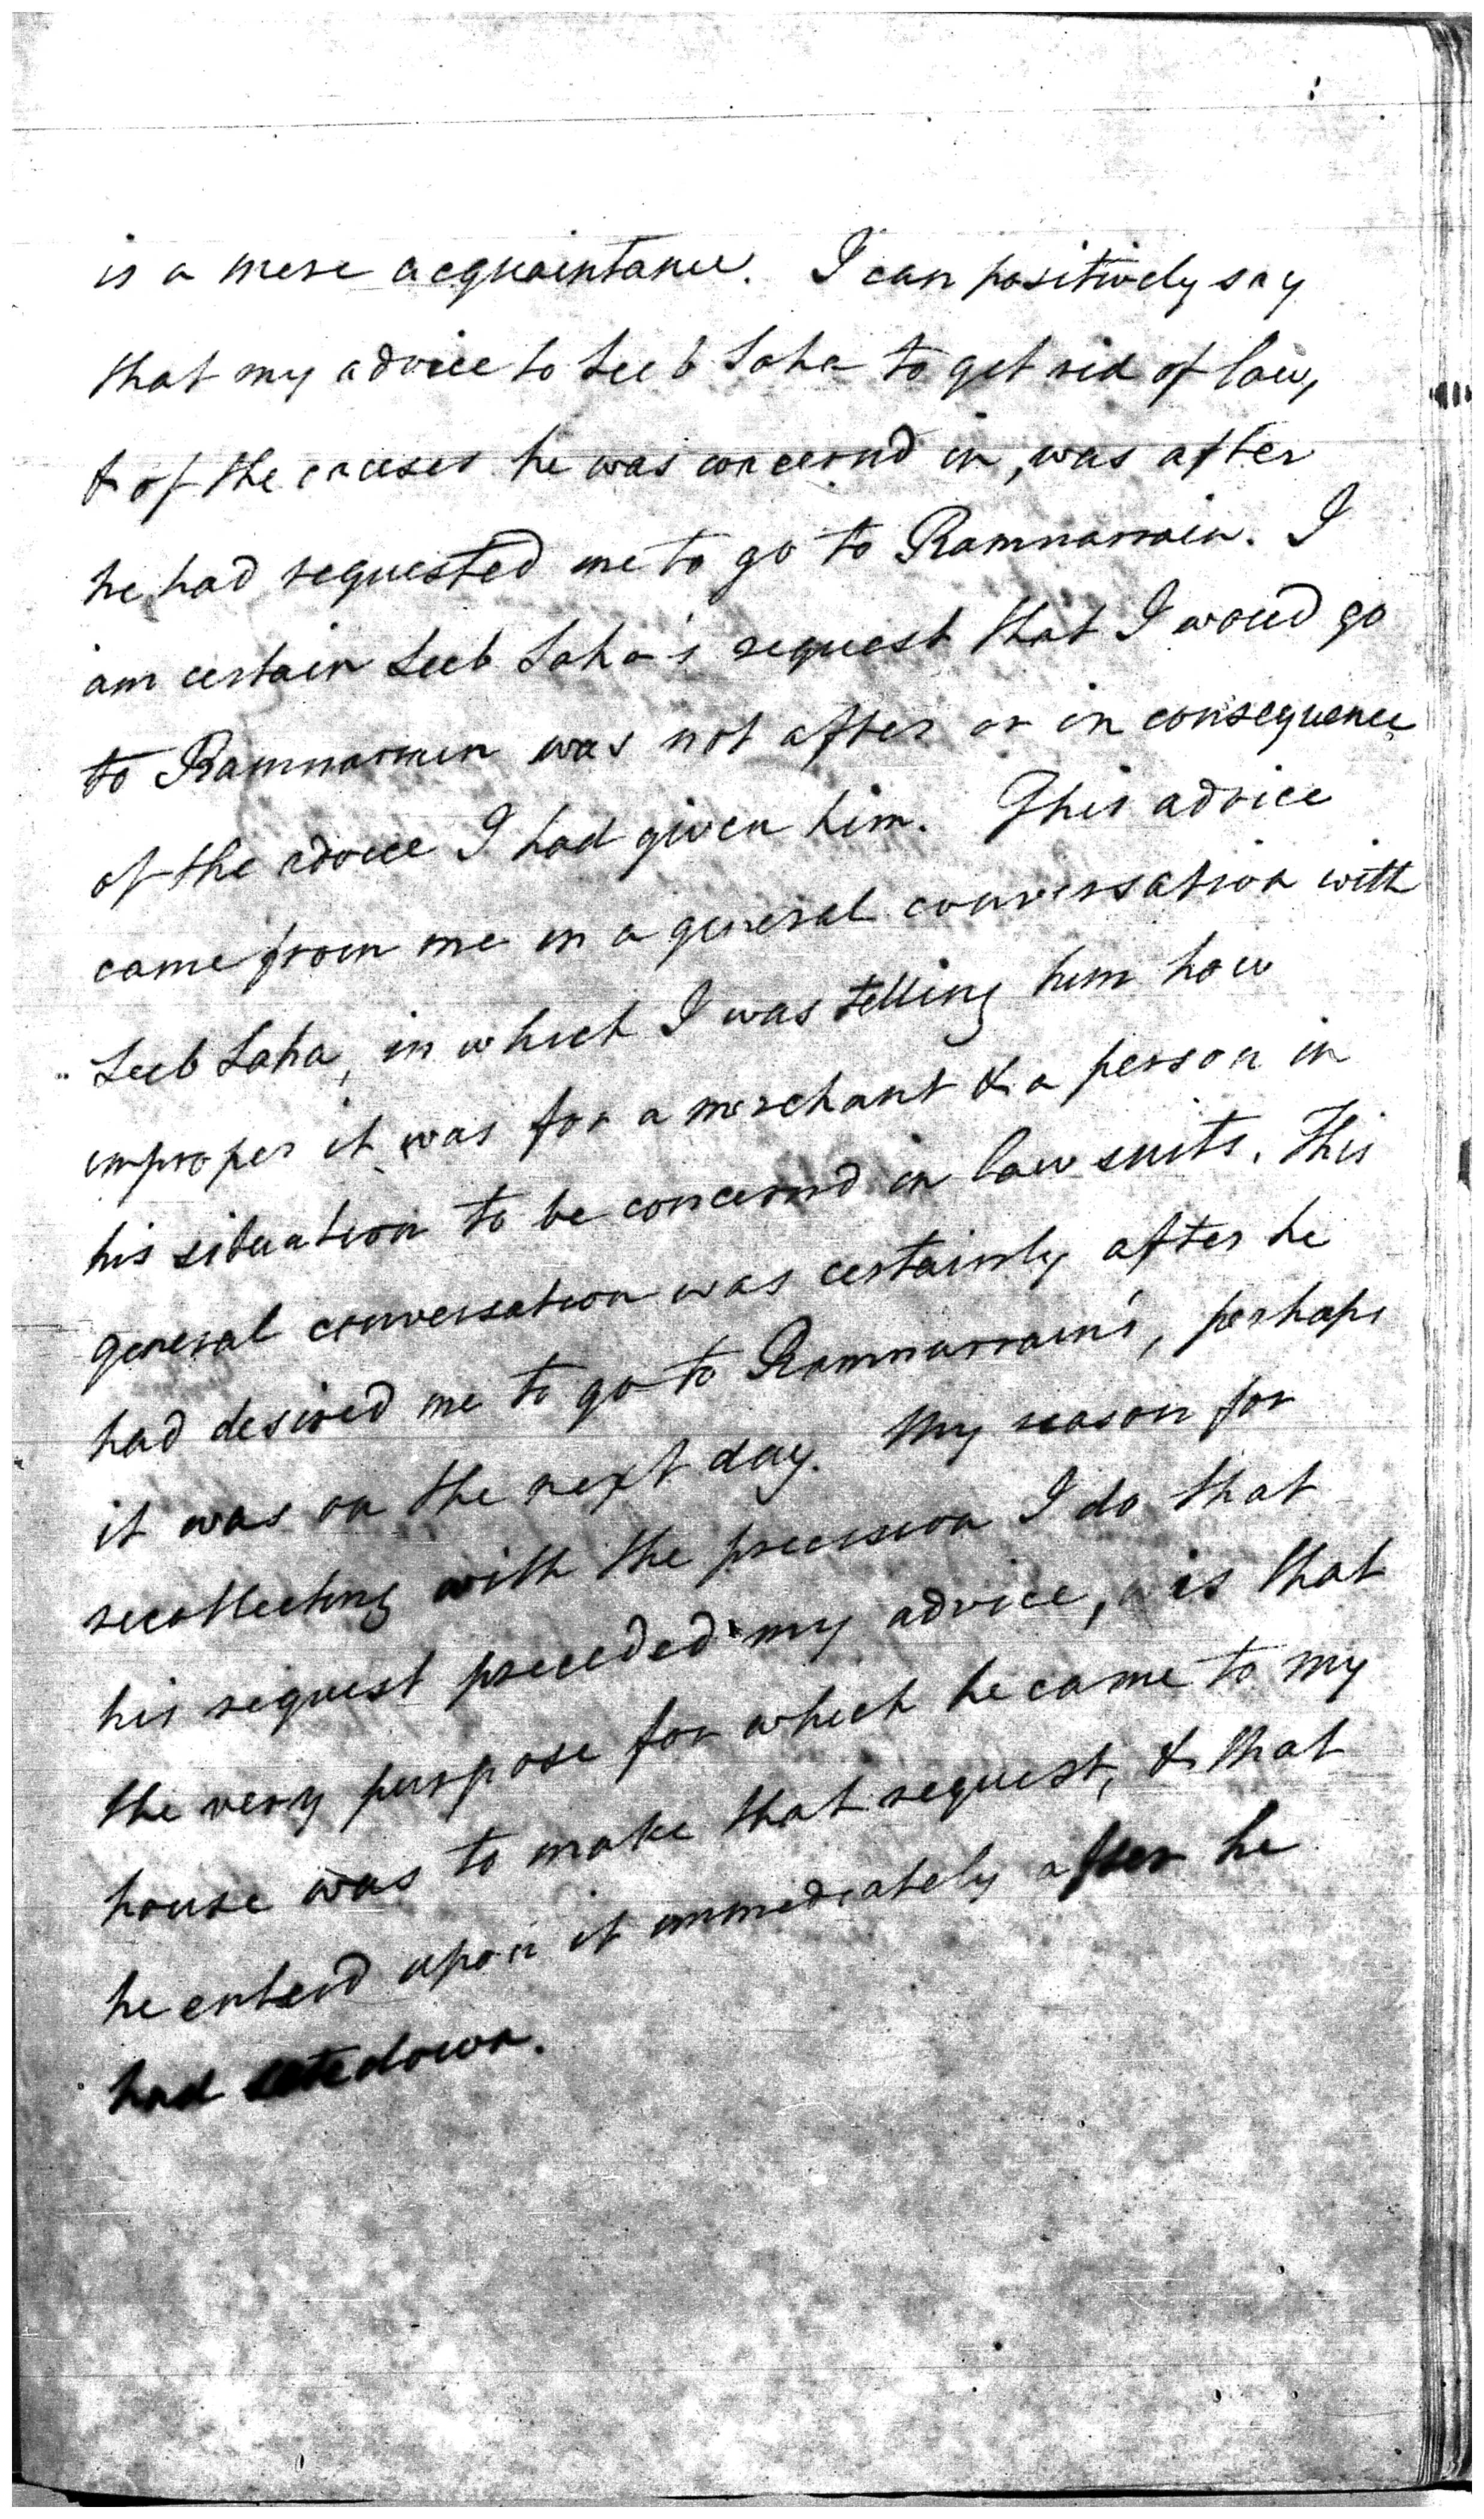 is a mere acquaintance. I can positively say
that my advice to Seeb Saha to get rid of law,
& of the causes he was concernd in, was after
he had requested me to go to Ramnarrain. I
am certain Seeb Saha's request that I woud go
to Ramnarrain was not after or in consequence
of the advice I had given him. This advice
came from me in a general conversation with
Seeb Saha, in which I was telling him how
improper it was for a merchant & a person in
his situation to be concernd in law suits. This
general conversation was certainly after he
had desired me to go to Ramnarrain's, perhaps
it was on the next day. My reason for
recollecting with the precision I do that
his request preceded my advice, is that
the very purpose for which he came to my
house was to make that request, & that
he enterd upon it immediately after he
had sate down.